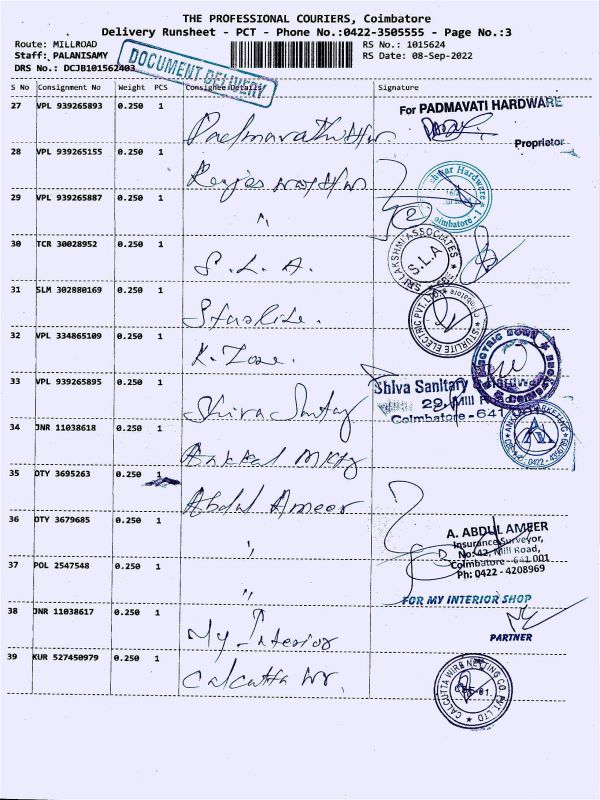 THE PROFESSIONAL COURIERS, Coimbatore
Delivery Runsheet - PCT - Phone No.:0422-3505555 - Page No.:3
Route: MILLROAD
RS No.: 1015624
Staff: PALANISAMY
RS Date: 08-Sep-2022
DRS No.: DCJB101562403
DOCUMENT DELIVERY
S No Consignment No Weight PCS Consignee Details Signature
27 VPL 939265893 0.250 1
For PADMAVATI HARDWARE
Proprietor
28 VPL 939265155 0.250 1
29 VPL 939265887 0.250 1 "
2
30 TCR 30028952 0.250 1 S.L.A.
SRI LAKSHMI ASSOCIATES
S.L.A
31 SLM 302880169 0.250 1 Starlite.
STURLITE ELECTRIC PVT. LTD.
32 VPL 334865109 0.250 1 K. Zone.
33 VPL 939265895 0.250 1 Shiva Sanitay
Shiva Sanitary & Hardware
29, Mill Road
Coimbatore - 641 001
34 JNR 11038618 0.250 1 Ankkal Mktg
35 DTY 3695263 0.250 1 Abdul Ameer
36 DTY 3679685 0.250 1 "
A. ABDUL AMEER
Insurance Surveyor,
No:42, Mill Road,
Coimbatore - 641 001
Ph: 0422 - 4208969
37 POL 2547548 0.250 1 "
FOR MY INTERIOR SHOP
38 JNR 11038617 0.250 1 My Interior
PARTNER
39 KUR 527450979 0.250 1 Calcutta Wr.
CALCUTTA WIRE NETTING CO. PVT. LTD